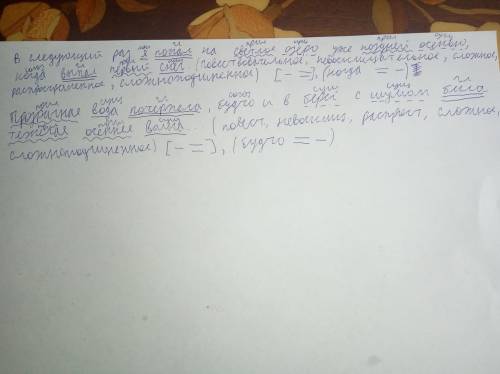 В следующий раз я попал на светлое озеро уже поздней осенью,
когда выпал первый снег (повествовательное, невосклицательное, сложное,
распространенное, сложноподчиненное) [- =], (когда = -)
Прозрачная вода потемнела, будто и в берег с шумом била
тяжелая осенняя волна... (повест, невосклиц, распрост, сложное,
сложноподчиненное) [- =], (будто = -)